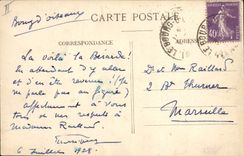 II
Bourg d'oisans
CARTE POSTALE
CORRESPONDANCE
La voilà la Bérarde!
En attendant d'y aller
et d'en être revenu! (je ne
puis pas me figurer)
affectueusement à vous
tous et mes respects à
Madame Raillard.
6 Juillet 1928.
LE BOURG
ADRESSE
40
Dr et Mme Raillard
2 Bd Thurner
Marseille